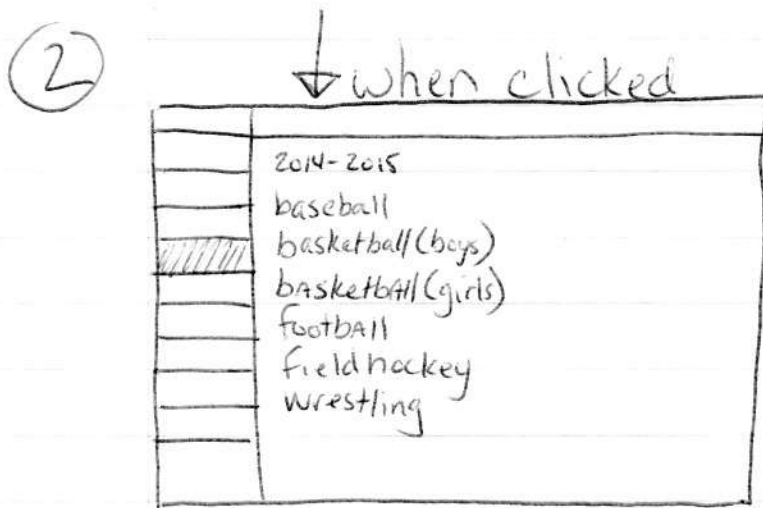 2
when clicked
2014-2015
baseball
basketball(boys)
bAsketbAll(girls)
footbAll
fieldhockey
wrestling